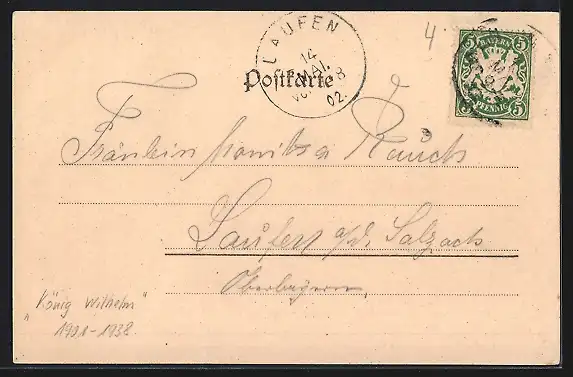 4
LAUFEN
14
MAI.
8
02.
Postkarte
BAYERN
5 5
5 5
PFENNIG
Fräulein Rauch
Laufen a/d. Salzach
Oberbayern.
"König Wilhelm"
1901-1938